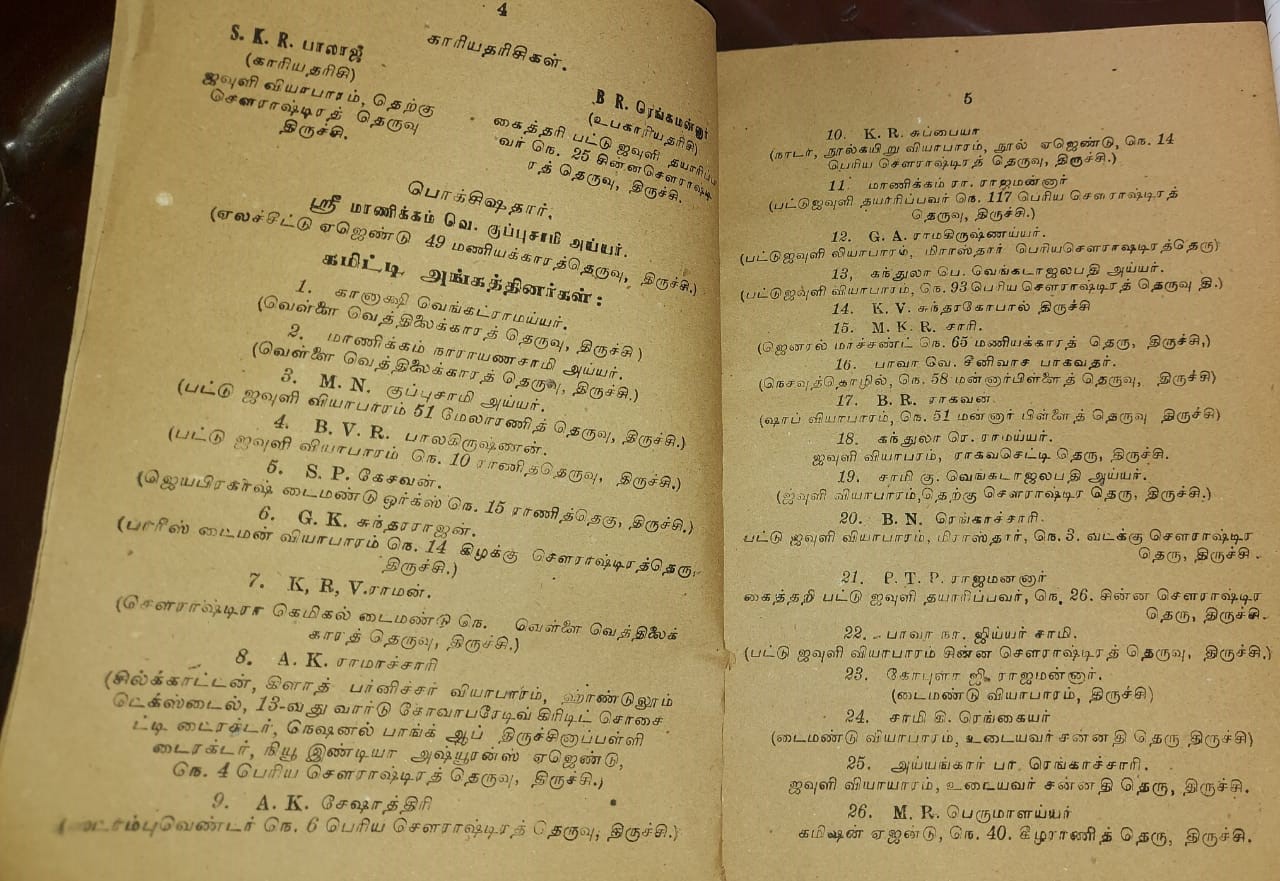 4
காரியதரிசிகள்.
S. K. R. பாலாஜீ
(காரியதரிசி)
ஜவுளி வியாபாரம், தெற்கு
சௌராஷ்டிரத் தெருவு
திருச்சி.
B R. ரெங்கமன்னூர்
(உபகாரியதரிசி)
கைத்தரி பட்டு ஜவுளி தயாரிப்ப
வர் நெ. 25 சின்னசௌராஷ்டி
ரத் தெருவு, திருச்சி.
பொக்கிஷதார்.
ஸ்ரீ மாணிக்கம் வெ. குப்புசாமி அய்யர்.
(ஏலச்சீட்டு ஏஜெண்டு 49 மணியக்காரத்தெருவு, திருச்சி.)
கமிட்டி அங்கத்தினர்கள் :
1. கானாக்ஷி வெங்கட்ராமய்யர்.
(வெள்ளை வெத்திலைக்காரத் தெருவு, திருச்சி)
2. மாணிக்கம் நாராயணசாமி அய்யர்.
(வெள்ளை வெத்திலைக்காரத் தெருவு, திருச்சி.)
3. M. N. குப்புசாமி அய்யர்.
(பட்டு ஜவுளி வியாபாரம் 51 மேலாரணித் தெருவு, திருச்சி.)
4. B. V. R. பாலகிருஷ்ணன்.
(பட்டு ஜவுளி வியாபாரம் நெ. 10 ராணித்தெருவு, திருச்சி.)
5. S. P. கேசவன்.
(ஜெயபிரகாஷ் டைமண்டு ஒர்க்ஸ் நெ. 15 ராணித்தெகு, திருச்சி.)
6. G. K. சுந்தரராஜன்.
(பாரிஸ் டைமன் வியாபாரம் நெ. 14 கிழக்கு சௌராஷ்டிரத்தெரு,
திருச்சி.)
7. K, R, V.ராமன்.
(சௌராஷ்டிரா கெமிகல் டைமண்டு நெ. வெள்ளை வெத்திலைக்
காரத் தெருவு, திருச்சி.)
8. A. K. ராமாச்சாரி
(சில்க்காட்டன், கிளாத் பர்னிச்சர் வியாபாரம், ஹாண்டுலூம்
டெக்ஸ்டைல், 13-வது வார்டு கோவாபரேடிவ் கிரிடிட் சொசை
ட்டி டைரக்டர், நெஷனல் பாங்க் ஆப் திருச்சினாப்பள்ளி
டைரக்டர், நியூ இண்டியா அஷ்யூரன்ஸ் ஏஜெண்டு,
நெ. 4 பெரிய சௌராஷ்டிரத் தெருவு, திருச்சி.)
9. A. K. சேஷாத்திரி
நெ. 6 பெரிய சௌராஷ்டிரத் தெருவு, திருச்சி.)
5
10. K. R. சுப்பையா
(நாடர், நூல்கயிறு வியாபாரம், நூல் ஏஜெண்டு, நெ. 14
பெரிய சௌராஷ்டிரத் தெருவு, திருச்சி.)
11. மாணிக்கம் ரா. ராஜமன்னார்
(பட்டுஜவுளி தயார்ரிப்பவர் நெ. 117 பெரிய சௌராஷ்டிரத்
தெருவு, திருச்சி.)
12. G. A. ராமகிருஷ்ணய்யர்.
(பட்டுஜவுளி வியாபாரம், மிராஸ்தார் பெரியசௌராஷ்டிரத்தெரு)
13, கந்துலா பெ. வெங்கடாஜலபதி அய்யர்.
(பட்டுஜவுளி வியாபாரம், நெ. 93 பெரிய சௌராஷ்டிரத் தெருவு தி.)
14. K. V. சுந்தரகோபால் திருச்சி
15. M. K. R. சாரி.
(ஜெனரல் மாச்சண்ட் நெ. 65 மணியக்காரத் தெரு, திருச்சி,)
16. பாவா வே. சீனிவாச பாகவதர்.
(நெசவுத்தொழில், நெ. 58 மன்னார்பிள்ளைத் தெருவு, திருச்சி)
17. B. R. ராகவன்.
(ஷாப் வியாபாரம், நெ. 51 மன்னார் பிள்ளைத் தெருவு திருச்சி)
18. கந்துலா ரெ. ராமய்யர்.
ஜவுளி வியாபாரம், ராகவசெட்டி தெரு, திருச்சி.
19. சாமி கு. வெங்கடாஜலபதி அய்யர்.
(ஜவுளி வியாபாரம்,தெற்கு சௌராஷ்டிர தெரு, திருச்சி.)
20. B. N. ரெங்காச்சாரி.
பட்டு ஜவுளி வியாபாரம், மிராஸ்தார், நெ. 3. வடக்கு சௌராஷ்டிர
தெரு, திருச்சி.
21. P. T. P. ராஜமனனார்
கைத்தறி பட்டு ஜவுளி தயாரிப்பவர், நெ, 26. சின்ன சௌராஷ்டிர
தெரு, திருச்சி.
22. பாவா நா. ஜிய்யர் சாமி.
(பட்டு ஜவுளி வியாபாரம் சின்ன சௌராஷ்டிரத் தெருவு, திருச்சி.)
23. கோபுளா ஜி. ராஜமன்னார்.
(டைமண்டு வியாபாரம், திருச்சி)
24. சாமி கி. ரெங்கையர்
(டைமண்டு வியாபாரம், உடையவர் சன்னதி தெரு திருச்சி)
25. அய்யங்கார் பா. ரெங்காச்சாரி.
ஜவுளி வியாயாரம், உடையவர் சன்னதி தெரு, திருச்சி.
26. M. R. பெருமாளய்யர்
கமிஷன் ஏஜண்டு, நெ. 40. கீழராணித் தெரு, திருச்சி.